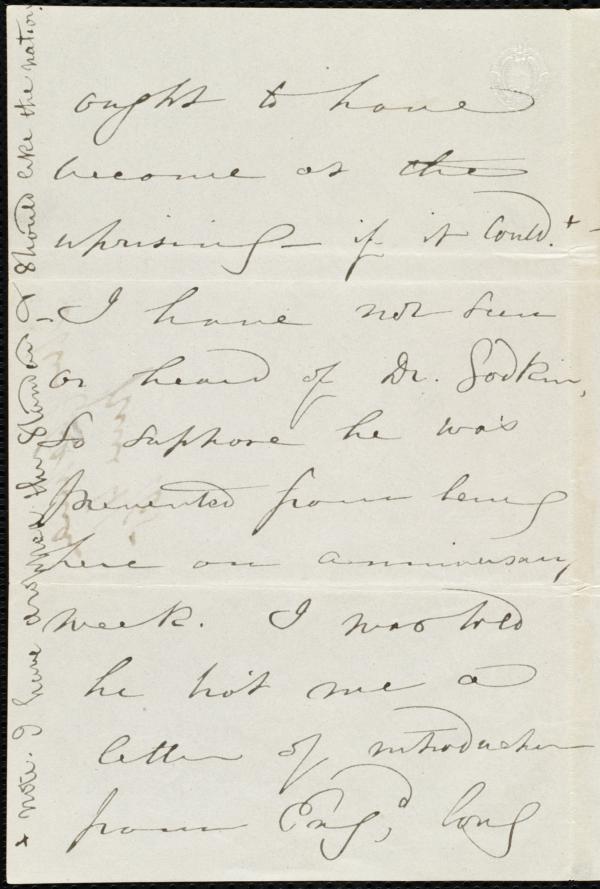 ought to have
become at the
uprising — if it could.+
— I have not seen
or heard of Dr. Godkin,
So suppose he was
prevented from being
here on anniversary
week. I was told
he had me a
letter of introduction
from Eng.d, long
+ note. I have dropped the Standard & should like the nation.